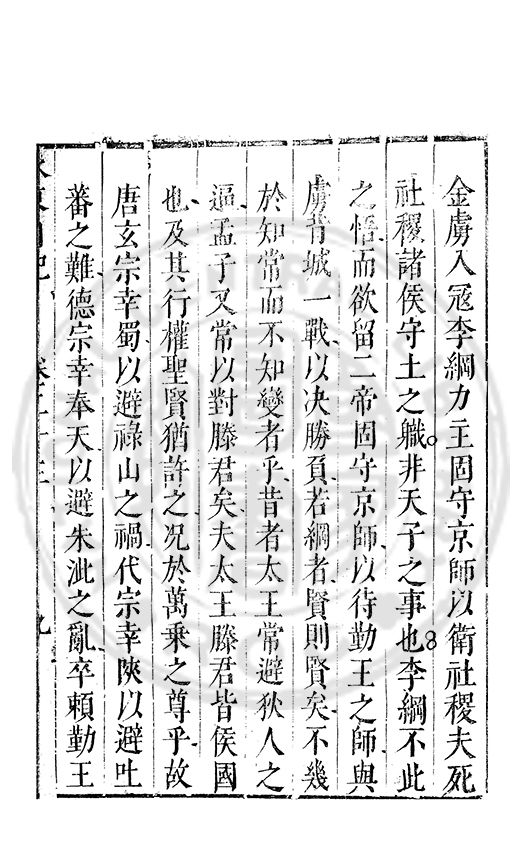 金虜入冦李綱力主固守京師以衛社稷夫死
社稷諸侯守土之職非天子之事也李綱不此
之悟而欲留二帝固守京師以待勤王之師與
虜背城一戰以决勝負若綱者賢則賢矣不幾
於知常而不知變者乎昔者太王常避狄人之
逼孟子又常以對滕君矣夫太王滕君皆侯國
也及其行權聖賢猶許之况於萬乗之尊乎故
唐玄宗幸蜀以避祿山之禍代宗幸陜以避吐
蕃之難德宗幸奉天以避朱泚之亂卒頼勤王